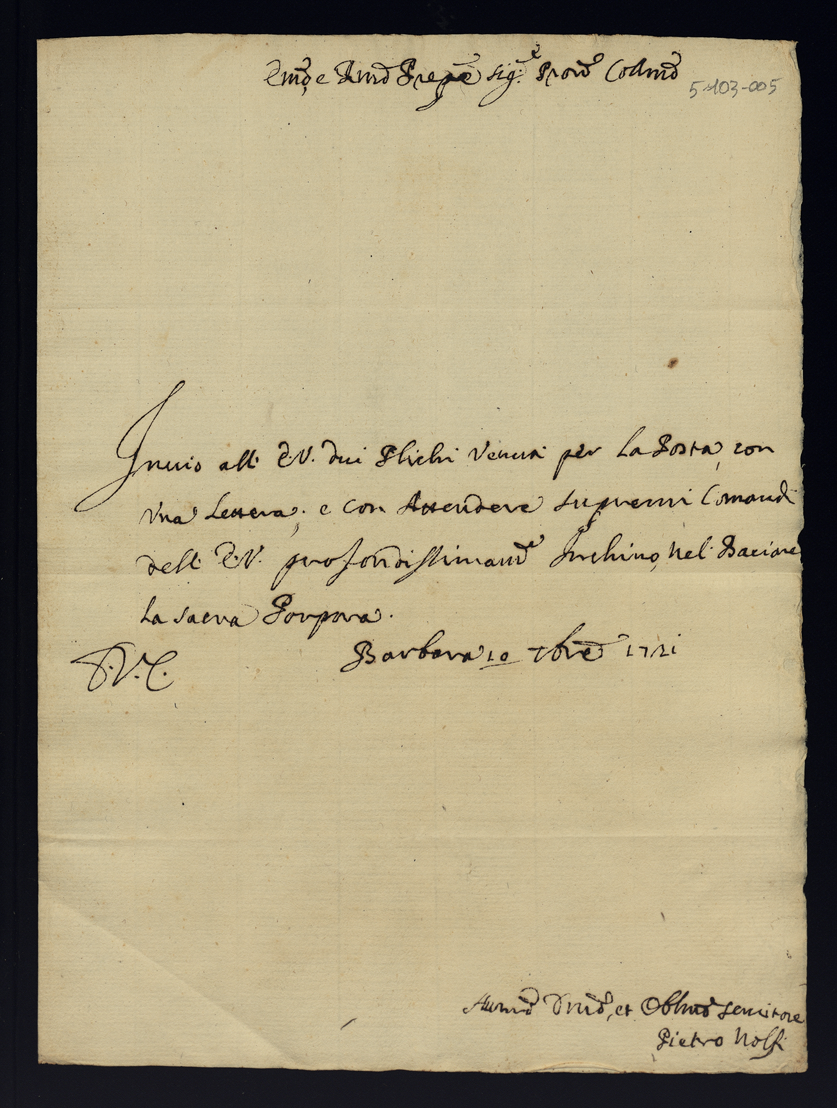 Emo, e Rmo Prnpe Sigre Prone Colmo
5-103-005
Inuio all' E.V. dui Plichi Venuti per La Posta, con
Vna Lettera; e con Attendere supremi Comandi
dell' E.V. profondissimamte Inchino, nel Baciare
La sacra Porpora.
Barbara 10 7bre 1721
D.V.E.
Aumo Dmo, et Obbmo seruitore
Pietro Nolfi